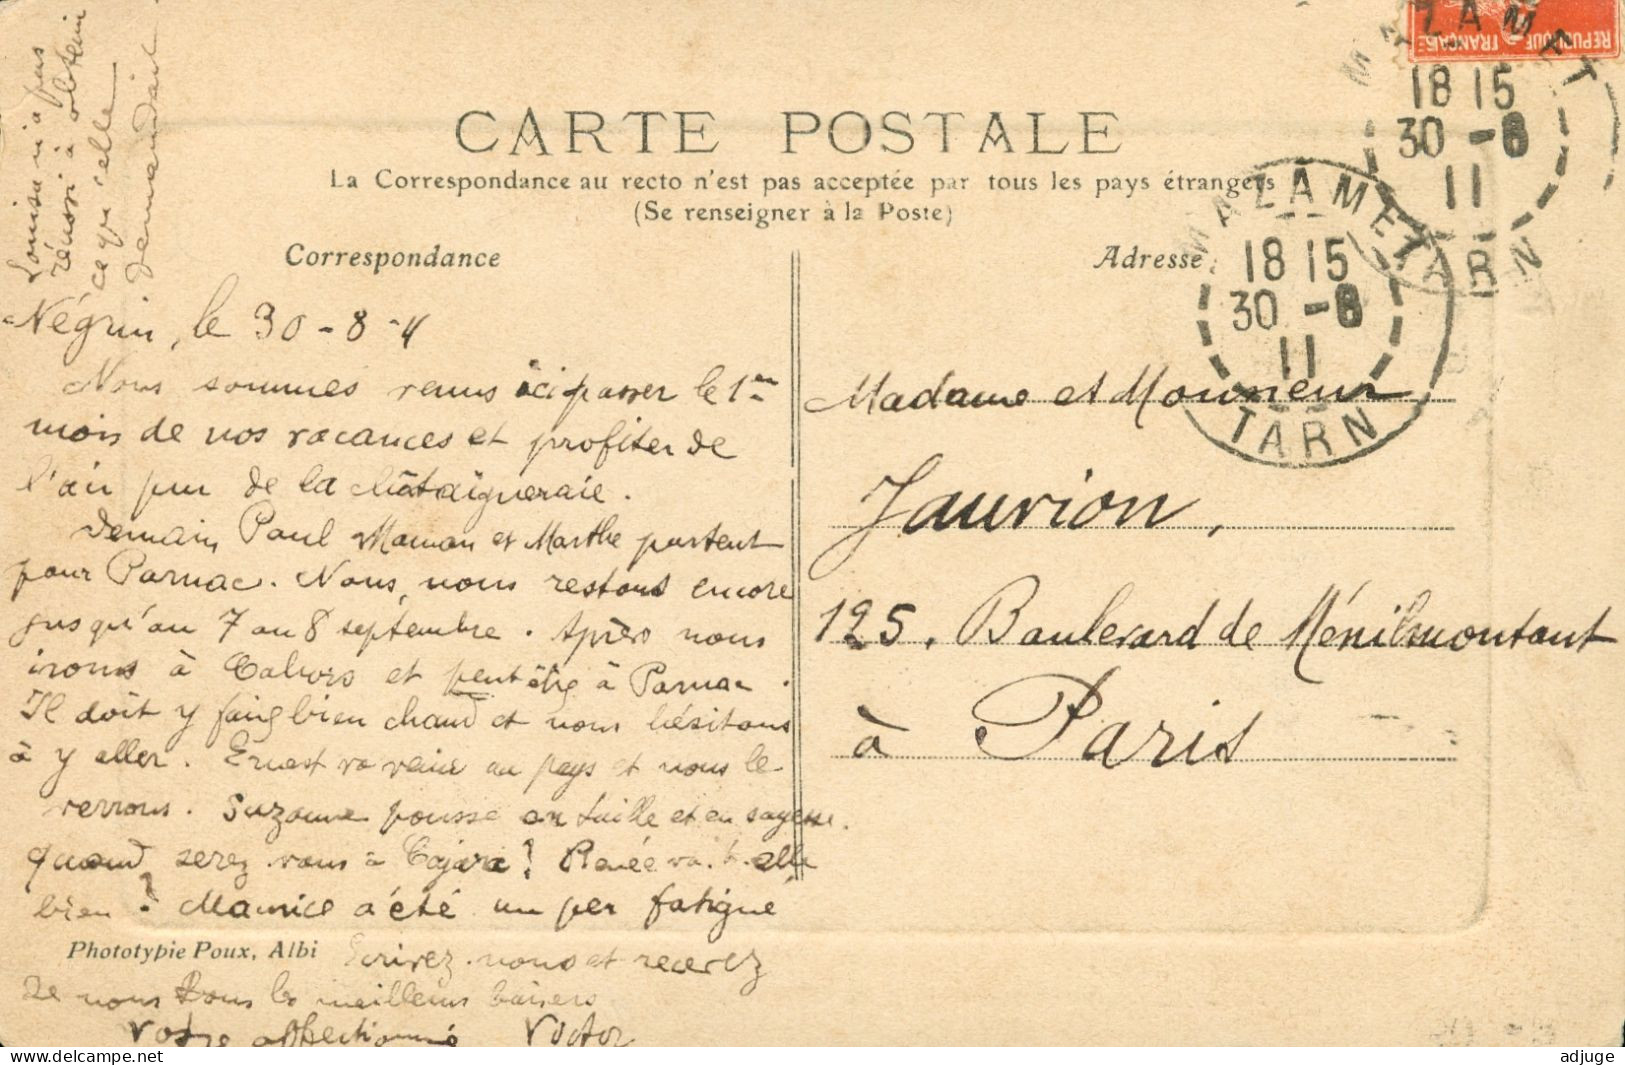 Louise n'a pas
réussi à obtenir
ce qu'elle
demandait
CARTE POSTALE
La Correspondance au recto n'est pas acceptée par tous les pays étrangers
(Se renseigner à la Poste)
Correspondance
Négrin, le 30-8-11
Nous sommes venus ici passer le 1er
mois de nos vacances et profiter de
l'air pur de la châtaigneraie.
Demain Paul Maman et Marthe partent
pour Parnac. Nous, nous restons encore
jusqu'au 7 au 8 septembre. Après nous
irons à Cahors et peut être à Parnac.
Il doit y faire bien chaud et nous hésitons
à y aller. Ernest va venir au pays et nous le
verrons. Suzanne pousse en taille et en sagesse.
quand serez vous à Cajarc? Renée va.t.elle
bien? Maurice a été un peu fatigué
Phototypie Poux, Albi
Ecrivez-nous et recevez
de nous tous les meilleurs baisers
Votre affectionné Victor
Adresse
Madame et Monsieur
Jauvion,
125, Boulevard de Ménilmontant
à Paris
REPUBLIQUE FRANÇAISE
MAZAMET
18 15
30 -8
11
TARN
MAZAMET
18 15
30 -8
11
TARN
adjuge